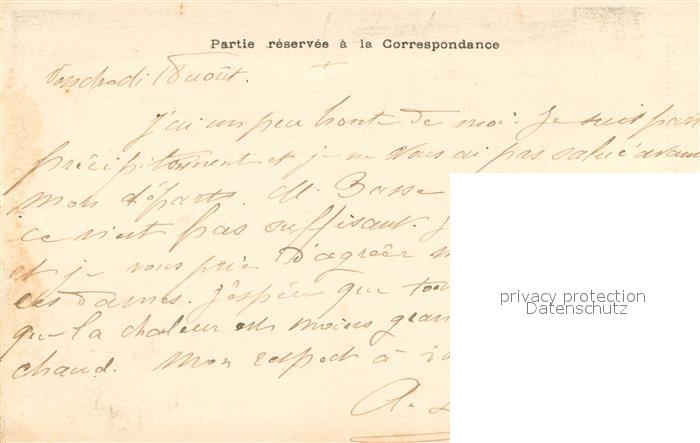 Partie réservée à la Correspondance
Vendredi 18 août.
J'ai un peu honte de moi. Je suis part
précipitamment et je ne vous ai pas salué avan
mon départ. M. Basse
ce n'est pas suffisant. J
et je vous prie d'agréer m
ces dames. J'espère que tou
que la chaleur est moins gran
chaud. Mon respect à
A.
privacy protection
Datenschutz